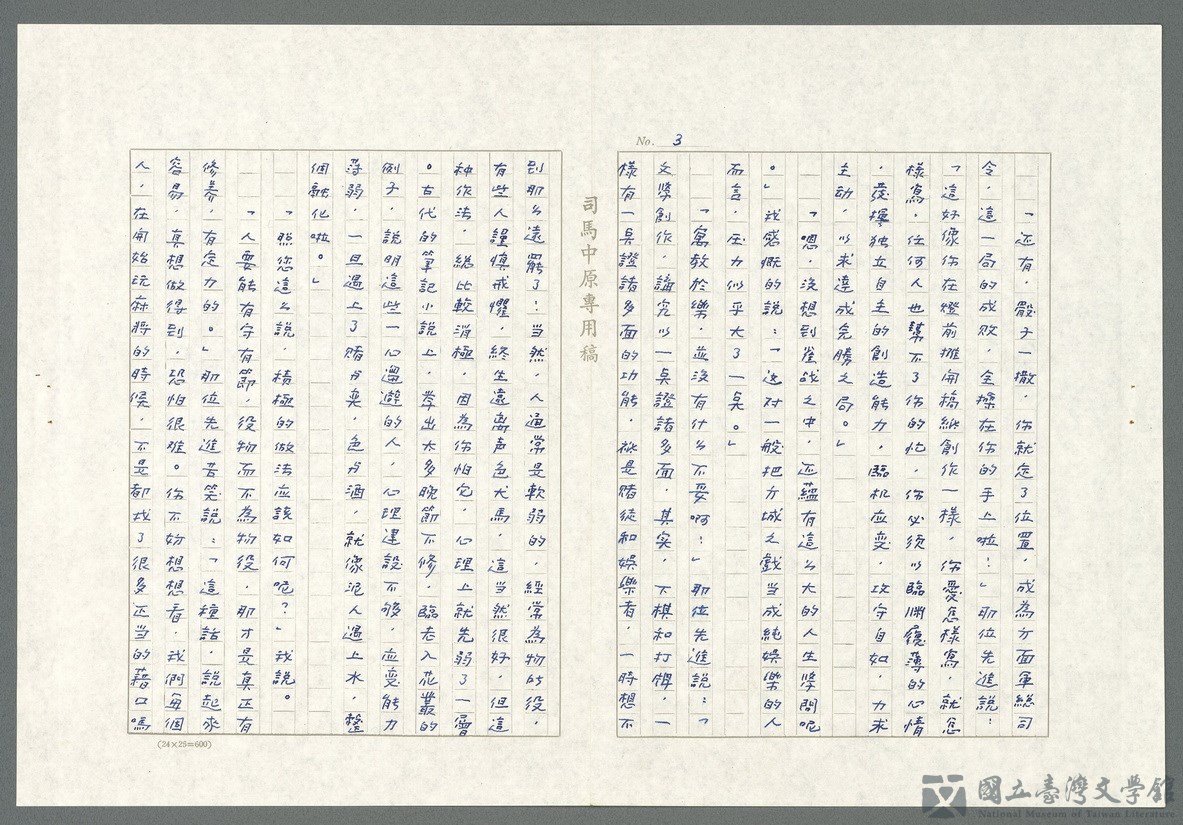 No. 3
「还有，骰子一撒，你就定了位置，成為方面軍総司
令，這一局的成敗，全操在你的手上啦！」那位先進説：
「這好像你在燈前攤開稿紙創作一樣，你愛怎樣寫，就怎
樣寫，任何人也幫不了你的忙，你必须以臨渊履薄的心情
，發揮独立自主的創造能力，臨机应变，攻守自如，力求
主动，以求達成克勝之局。」
「嗯，沒想到雀战之中，还蕴有這么大的人生學問呢
。」我感慨的説：「这对一般把方城之戲当成純娛樂的人
而言，压力似乎大了一桌。」
「寓教於樂，並沒有什么不妥啊！」那位先進説：「
文學創作，講究以一桌證諸多面，其实，下棋和打牌，一
樣有一桌證諸多面的功能，祇是賭徒和娛樂者，一時想不
司馬中原專用稿
到那么遠罷了！当然，人通常是軟弱的，經常為物所役，
有些人謹慎戒懼，終生遠离声色犬馬，這当然很好，但這
种作法，総比較消極，因為你怕它，心理上就先弱了一層
。古代的筆記小説上，举出太多晚節不修，臨老入花叢的
例子，説明這些一心迴避的人，心理建設不够，应变能力
薄弱，一旦遇上了賭分奕，色分酒，就像泥人遇上水，整
個融化啦。」
「照您這么説，積極的做法应該如何呢？」我説。
「人要能有守有節，役物而不為物役，那才是真正有
修养，有定力的。」那位先進苦笑説：「這種話，説起來
容易，真想做得到，恐怕很难。你不妨想想看，我們每個
人，在開始玩麻將的時候，不是都找了很多正当的藉口嗎
(24×25=600)
國立臺灣文學館
National Museum of Taiwan Literature